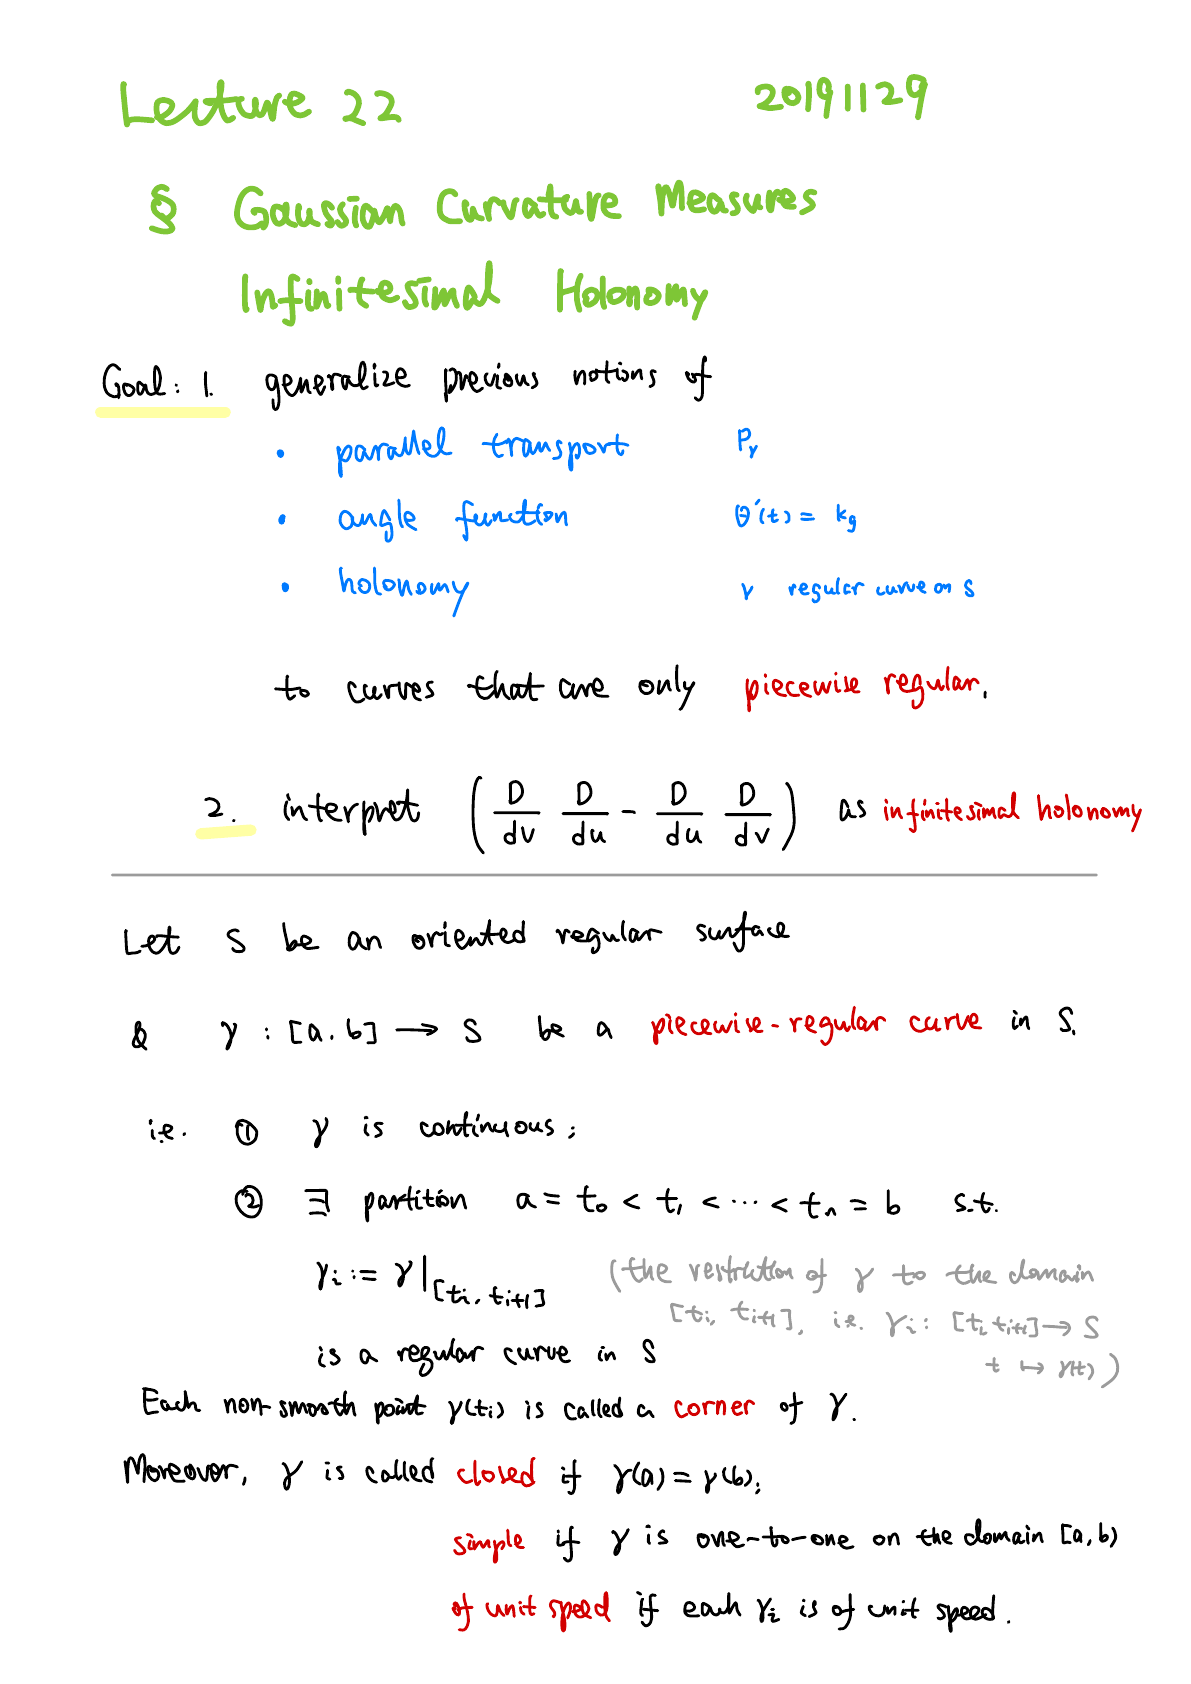 Lecture 22 20191129
§ Gaussian Curvature Measures
Infinitesimal Holonomy
Goal: 1. generalize previous notions of
• parallel transport P_γ
• angle function θ'(t) = k_g
• holonomy γ regular curve on S
to curves that are only piecewise regular.
2. interpret (D/dv D/du - D/du D/dv) as infinitesimal holonomy
Let S be an oriented regular surface
& γ : [a, b] → S be a piecewise-regular curve in S.
i.e. ① γ is continuous;
② ∃ partition a = t₀ < t₁ < ··· < tₙ = b s.t.
γᵢ := γ|_[tᵢ, tᵢ₊₁] (the restriction of γ to the domain
[tᵢ, tᵢ₊₁], i.e. γᵢ : [tᵢ, tᵢ₊₁] → S
is a regular curve in S t ↦ γ(t))
Each non-smooth point γ(tᵢ) is called a corner of γ.
Moreover, γ is called closed if γ(a) = γ(b);
simple if γ is one-to-one on the domain [a, b)
of unit speed if each γᵢ is of unit speed.